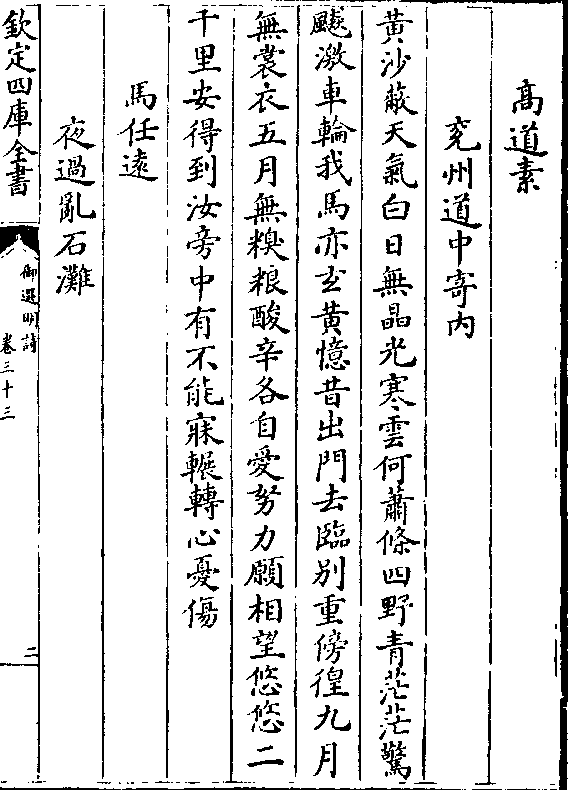 高道素
兖州道中寄内
黄沙蔽天氣白日無晶光寒雲何蕭條四野青茫茫驚
飈激車輪我馬亦玄黄憶昔出門去臨别重傍徨九月
無裳衣五月無糗粮酸辛各自愛努力願相望悠悠二
千里安得到汝旁中有不能寐輾轉心憂傷
馬任遠
夜過亂石灘
欽定四庫全書
御選明詩
卷三十三
二